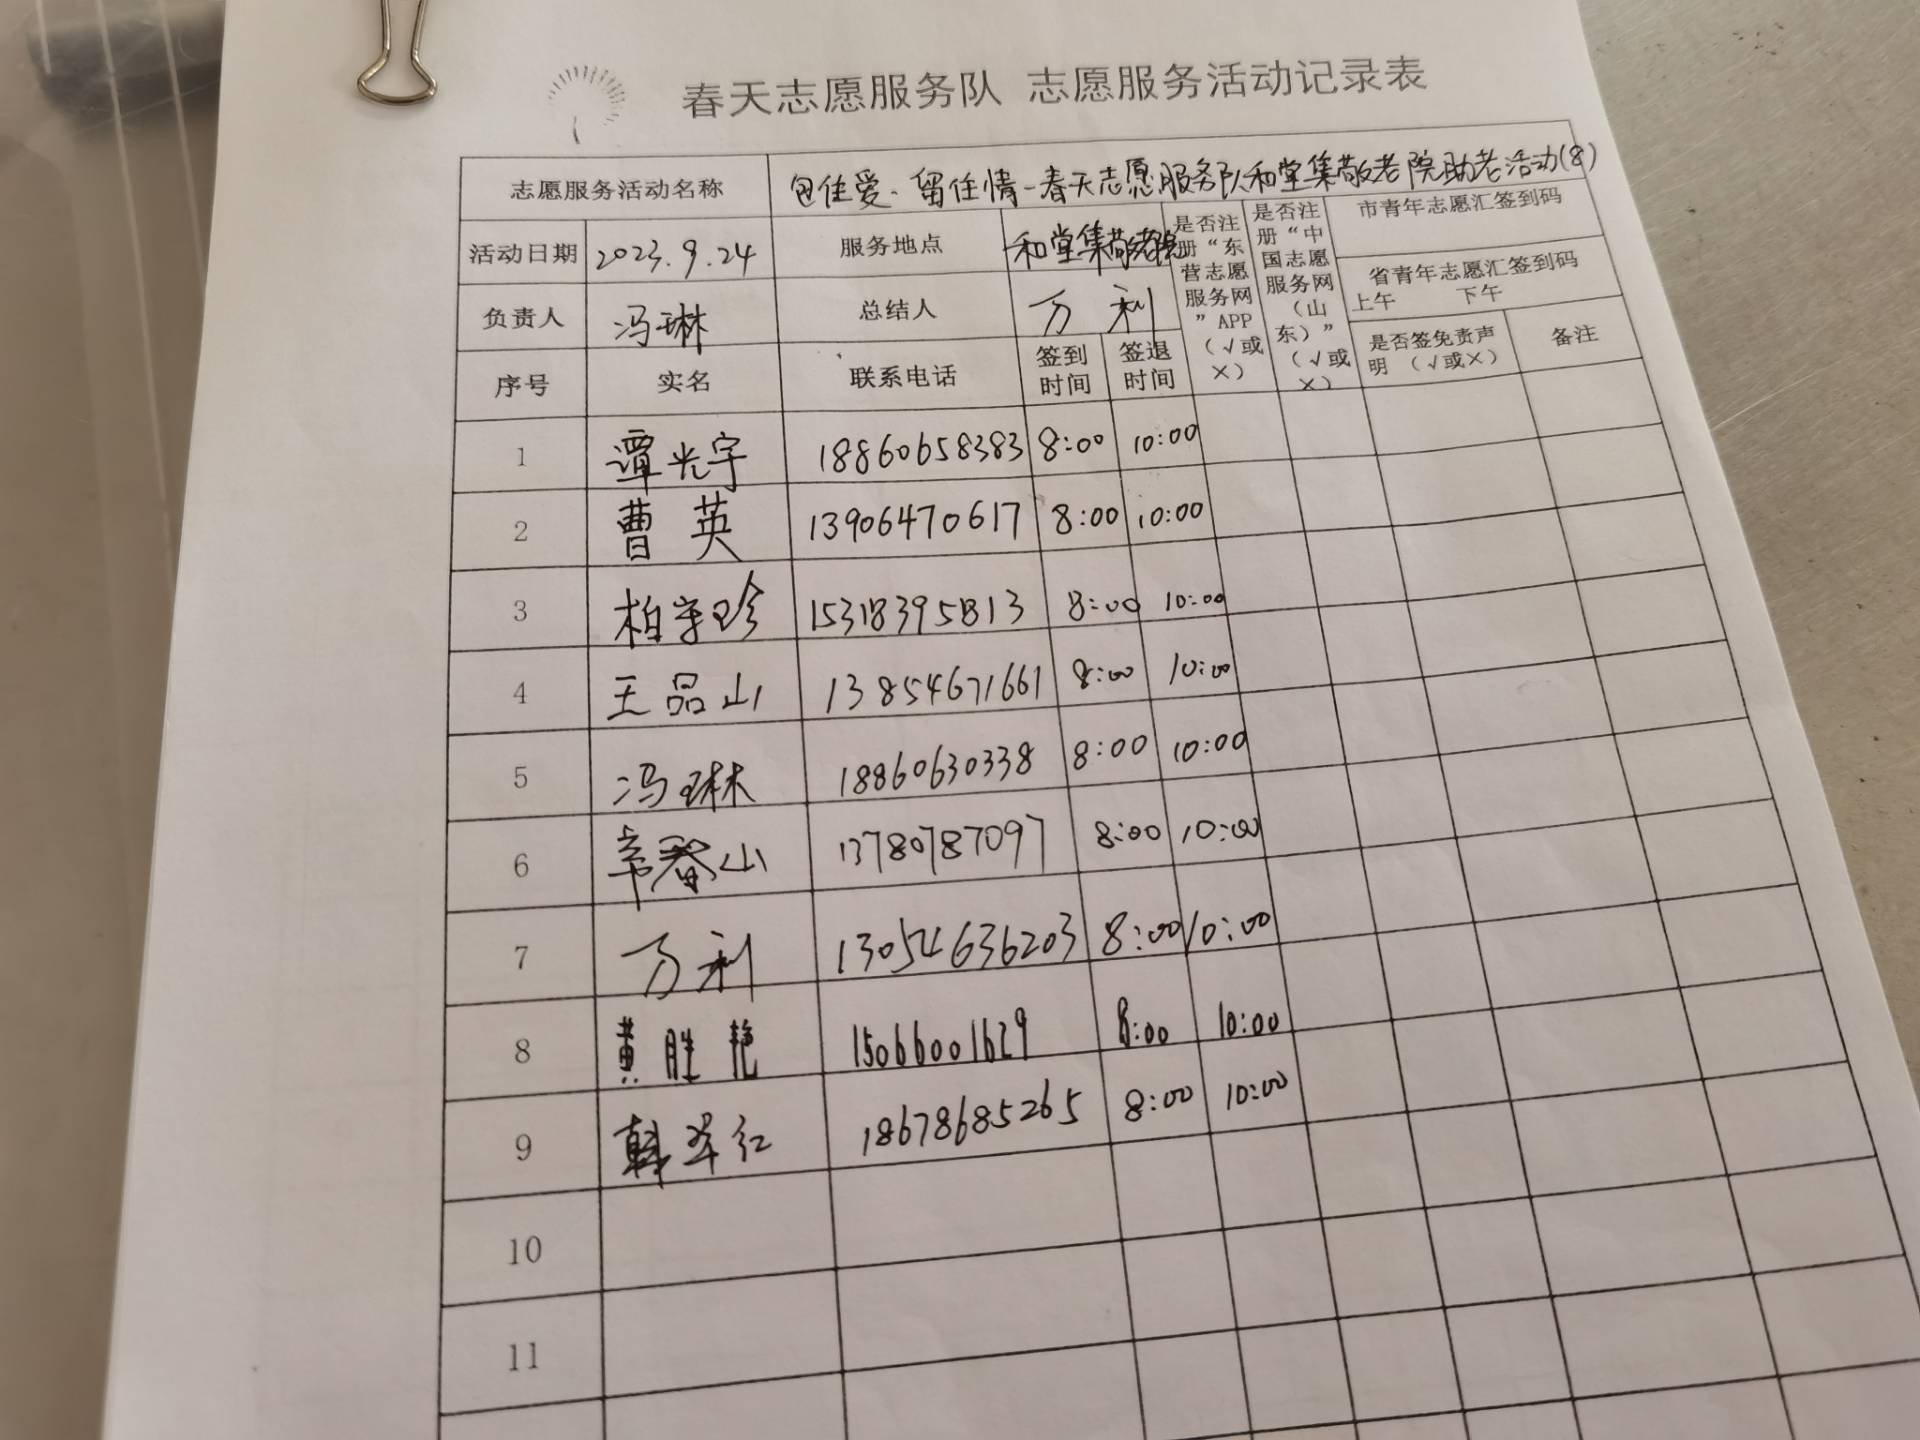 春天志愿服务队 志愿服务活动记录表
志愿服务活动名称 包住爱、留住情-春天志愿服务队和堂集敬老院助老活动(8)
活动日期 2023.9.24 服务地点 和堂集敬老院
负责人 冯琳 总结人 万利
是否注册“东营志愿服务网”APP（√或×）
是否注册“中国志愿服务网（山东）”（√或×）
市青年志愿汇签到码
省青年志愿汇签到码
上午 下午
序号 实名 联系电话 签到时间 签退时间 是否签免责声明（√或×） 备注
1 谭光宇 18860658383 8:00 10:00
2 曹英 13906470617 8:00 10:00
3 柏守珍 15318395813 8:00 10:00
4 王品山 13854671661 8:00 10:00
5 冯琳 18860630338 8:00 10:00
6 辛春山 13780787097 8:00 10:00
7 万利 13054636203 8:00 10:00
8 黄胜艳 15066001629 8:00 10:00
9 韩翠红 18678685265 8:00 10:00
10
11